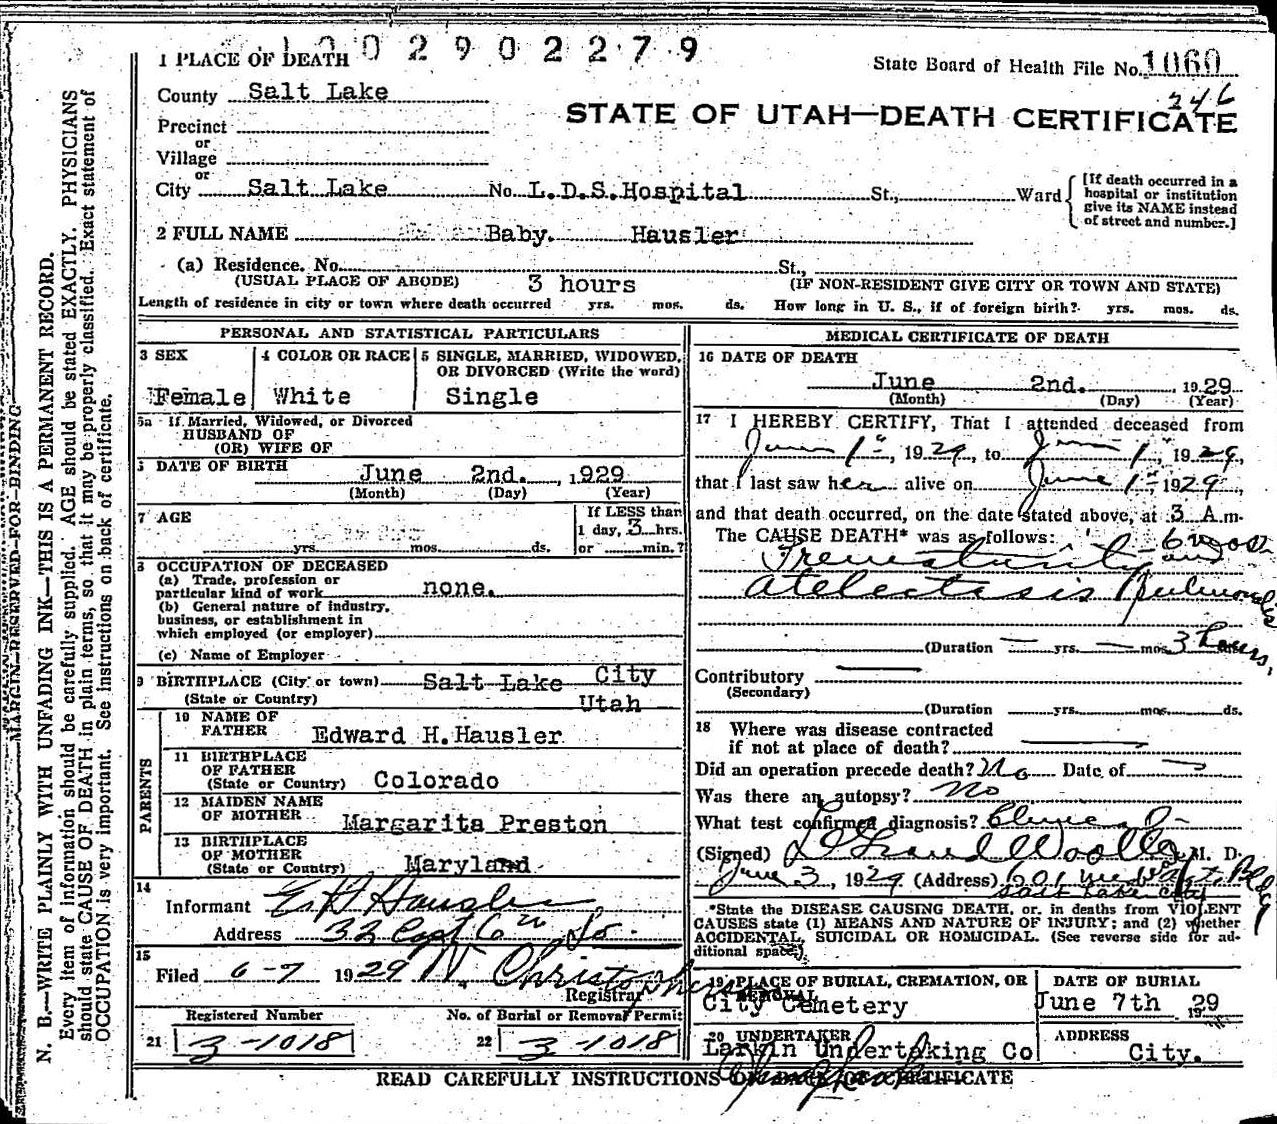 1002902279
1 PLACE OF DEATH
State Board of Health File No. 1060
246
County Salt Lake
STATE OF UTAH—DEATH CERTIFICATE
Precinct
or
Village
or
City Salt Lake No. L.D.S.Hospital St., Ward
[If death occurred in a hospital or institution give its NAME instead of street and number.]
2 FULL NAME Baby. Hausler
(a) Residence. No. St.,
(USUAL PLACE OF ABODE) 3 hours (IF NON-RESIDENT GIVE CITY OR TOWN AND STATE)
Length of residence in city or town where death occurred yrs. mos. ds. How long in U. S., if of foreign birth? yrs. mos. ds.
PERSONAL AND STATISTICAL PARTICULARS
3 SEX
Female
4 COLOR OR RACE
White
5 SINGLE, MARRIED, WIDOWED,
OR DIVORCED (Write the word)
Single
5a If Married, Widowed, or Divorced
HUSBAND OF
(OR) WIFE OF
DATE OF BIRTH June 2nd. , 1929
(Month) (Day) (Year)
7 AGE
yrs. mos. ds.
If LESS than
1 day, 3 hrs.
or min.?
8 OCCUPATION OF DECEASED
(a) Trade, profession or
particular kind of work none.
(b) General nature of industry,
business, or establishment in
which employed (or employer)
(c) Name of Employer
9 BIRTHPLACE (City or town) Salt Lake City
(State or Country) Utah
PARENTS
10 NAME OF
FATHER Edward H.Hausler
11 BIRTHPLACE
OF FATHER
(State or Country) Colorado
12 MAIDEN NAME
OF MOTHER Margarita Preston
13 BIRTHPLACE
OF MOTHER
(State or Country) Maryland
14
Informant E H Hausler
Address 32 East 6th So.
15
Filed 6-7 1929 W. Christopherson
Registrar
Registered Number No. of Burial or Removal Permit
21 3-1018 22 3-1018
MEDICAL CERTIFICATE OF DEATH
16 DATE OF DEATH
June 2nd. , 1929
(Month) (Day) (Year)
17 I HEREBY CERTIFY, That I attended deceased from
June 1st, 1929, to June 1, 1929,
that I last saw her alive on June 1st, 1929,
and that death occurred, on the date stated above, at 3 A.m.
The CAUSE DEATH* was as follows:
Prematurity 6 mos and
atelectasis Pulmonalis
(Duration yrs. mos. 3 hours,
Contributory
(Secondary)
(Duration yrs. mos. ds.
18 Where was disease contracted
if not at place of death?
Did an operation precede death? No Date of
Was there an autopsy? No
What test confirmed diagnosis? Clinical
(Signed) LeGrand Woolley M. D.
June 3, 1929 (Address) 601 Med Art. Bldg
Salt Lake City
*State the DISEASE CAUSING DEATH, or, in deaths from VIOLENT
CAUSES state (1) MEANS AND NATURE OF INJURY; and (2) whether
ACCIDENTAL, SUICIDAL OR HOMICIDAL. (See reverse side for ad-
ditional space.)
19 PLACE OF BURIAL, CREMATION, OR
REMOVAL
City Cemetery
DATE OF BURIAL
June 7th 1929
20 UNDERTAKER
Larkin Undertaking Co
ADDRESS
City.
READ CAREFULLY INSTRUCTIONS ON BACK OF CERTIFICATE
MARGIN RESERVED FOR BINDING
N. B.—WRITE PLAINLY WITH UNFADING INK—THIS IS A PERMANENT RECORD.
Every item of information should be carefully supplied. AGE should be stated EXACTLY. PHYSICIANS
should state CAUSE OF DEATH in plain terms, so that it may be properly classified. Exact statement of
OCCUPATION is very important. See instructions on back of certificate.